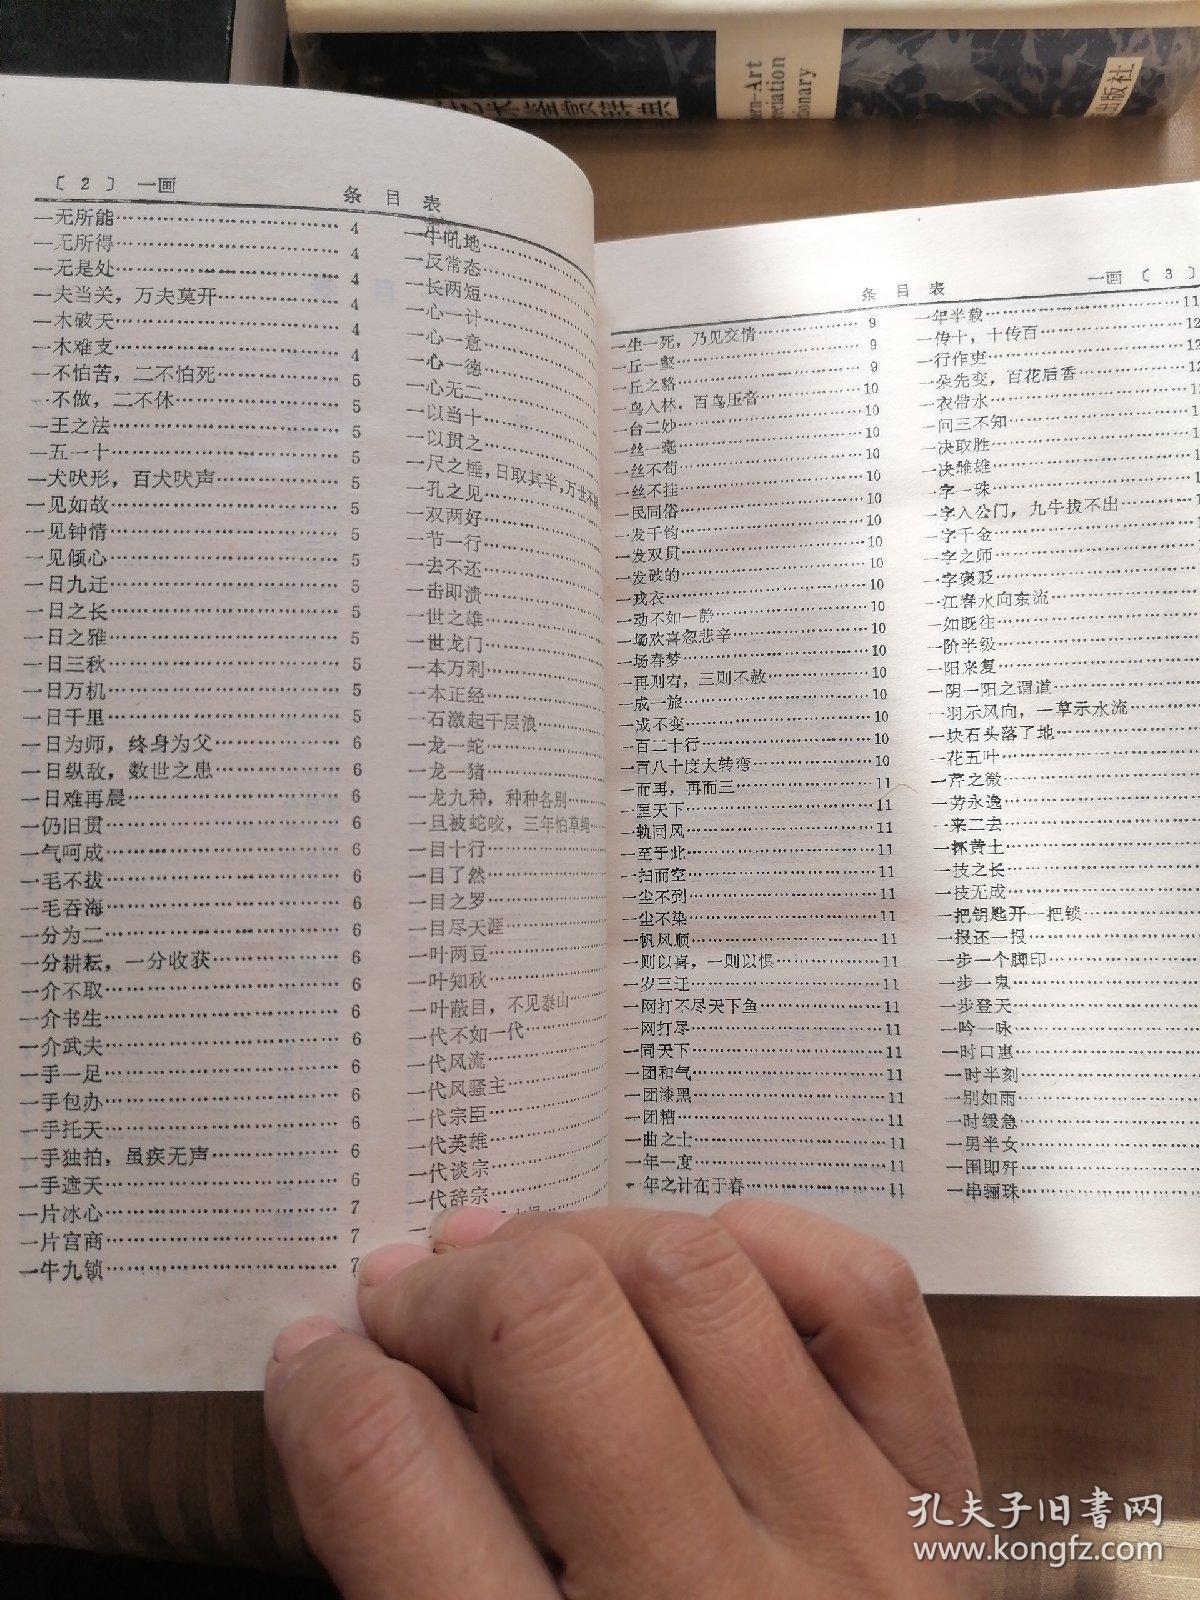 ern-Art
eciation
tionary
出版社
〔2〕 一画
条目表
一无所能…… 4
一无所得…… 4
一无是处…… 4
一夫当关，万夫莫开…… 4
一木破天…… 4
一木难支…… 4
一不怕苦，二不怕死…… 5
一不做，二不休…… 5
一王之法…… 5
一五一十…… 5
一犬吠形，百犬吠声…… 5
一见如故…… 5
一见钟情…… 5
一见倾心…… 5
一日九迁…… 5
一日之长…… 5
一日之雅…… 5
一日三秋…… 5
一日万机…… 5
一日千里…… 5
一日为师，终身为父…… 6
一日纵敌，数世之患…… 6
一日难再晨…… 6
一仍旧贯…… 6
一气呵成…… 6
一毛不拔…… 6
一毛吞海…… 6
一分为二…… 6
一分耕耘，一分收获…… 6
一介不取…… 6
一介书生…… 6
一介武夫…… 6
一手一足…… 6
一手包办…… 6
一手托天…… 6
一手独拍，虽疾无声…… 6
一手遮天…… 6
一片冰心…… 7
一片宫商…… 7
一牛九锁…… 7
一牛吼地……
一反常态……
一长两短……
一心一计……
一心一意……
一心一德……
一心无二……
一以当十……
一以贯之……
一尺之棰，日取其半，万世不
一孔之见……
一双两好……
一节一行……
一去不还……
一击即溃……
一世之雄……
一世龙门……
一本万利……
一本正经……
一石激起千层浪……
一龙一蛇……
一龙一猪……
一龙九种，种种各别……
一旦被蛇咬，三年怕草绳……
一目十行……
一目了然……
一目之罗……
一目尽天涯……
一叶两豆……
一叶知秋……
一叶蔽目，不见泰山……
一代不如一代……
一代风流……
一代风骚主……
一代宗臣……
一代英雄……
一代谈宗……
一代辞宗……
条目表
一画〔3〕
一生一死，乃见交情…… 9
一丘一壑…… 9
一丘之貉…… 9
一鸟入林，百鸟压音…… 10
一台二妙…… 10
一丝一毫…… 10
一丝不苟…… 10
一丝不挂…… 10
一民同俗…… 10
一发千钧…… 10
一发双贯…… 10
一发破的…… 10
一戎衣…… 10
一动不如一静…… 10
一场欢喜忽悲辛…… 10
一场春梦…… 10
一再则宥，三则不赦…… 10
一成一旅…… 10
一成不变…… 10
一百二十行…… 10
一百八十度大转弯…… 10
一而再，再而三…… 11
一匡天下…… 11
一轨同风…… 11
一至于此…… 11
一扫而空…… 11
一尘不到…… 11
一尘不染…… 11
一帆风顺…… 11
一则以喜，一则以惧…… 11
一岁三迁…… 11
一网打不尽天下鱼…… 11
一网打尽…… 11
一同天下…… 11
一团和气…… 11
一团漆黑…… 11
一团糟…… 11
一曲之士…… 11
一年一度…… 11
一年之计在于春…… 11
一年半载…… 11
一传十，十传百…… 12
一行作吏…… 12
一朵先变，百花后香…… 12
一衣带水……
一问三不知……
一决取胜……
一决雌雄……
一字一珠……
一字入公门，九牛拔不出……
一字千金……
一字之师……
一字褒贬……
一江春水向东流……
一如既往……
一阶半级……
一阳来复……
一阴一阳之谓道……
一羽示风向，一草示水流……
一块石头落了地……
一花五叶……
一芹之微……
一劳永逸……
一来二去……
一抔黄土……
一技之长……
一技无成……
一把钥匙开一把锁……
一报还一报……
一步一个脚印……
一步一鬼……
一步登天……
一吟一咏……
一时口惠……
一时半刻……
一别如雨……
一时缓急……
一男半女……
一围即歼……
一串骊珠……
孔夫子旧书网
www.kongfz.com